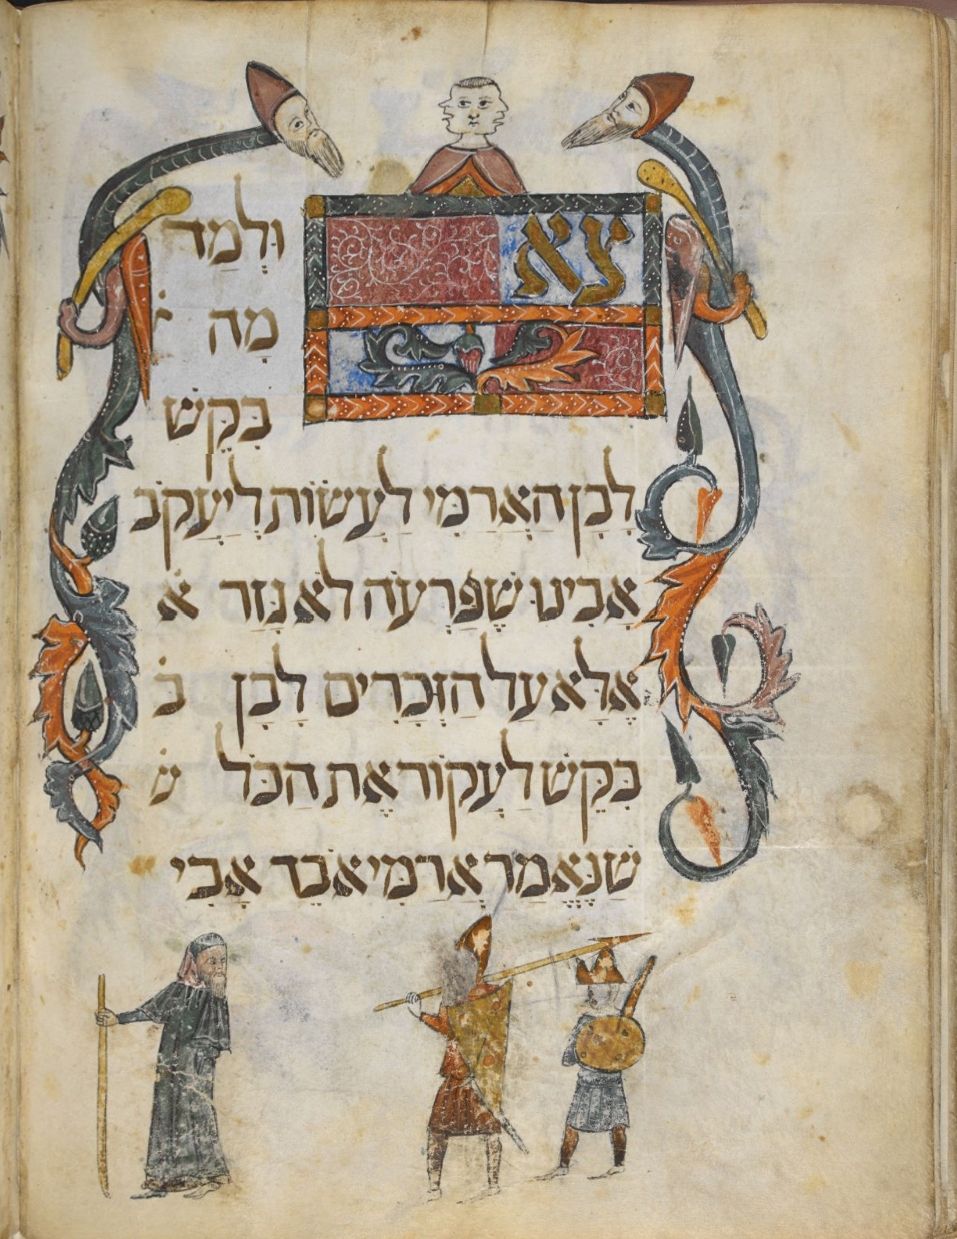 צֵא וּלְמַד
מַה י
בִּקֵּשׁ
לָבָן הָאֲרַמִּי לַעֲשׂוֹת לְיַעֲקֹב
אָבִינוּ שֶׁפַּרְעֹה לֹא גָּזַר א
אֶלָּא עַל הַזְּכָרִים לָבָן ב
בִּקֵּשׁ לַעֲקוֹר אֶת הַכֹּל ש
שֶׁנֶּאֱמַר אֲרַמִּי אֹבֵד אָבִי